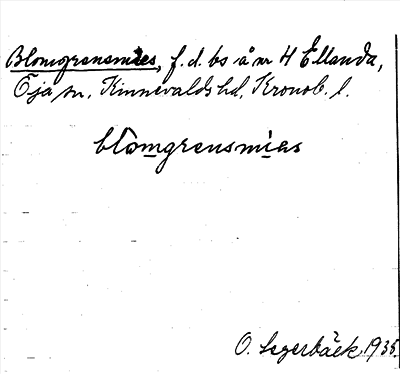 Blomgrensmiës, f.d. bs å nr 4 Ellanda,
Öja sn, Kinnevalds hd, Kronob. l.
blomgrensmias
O. Segerbäck 1935.